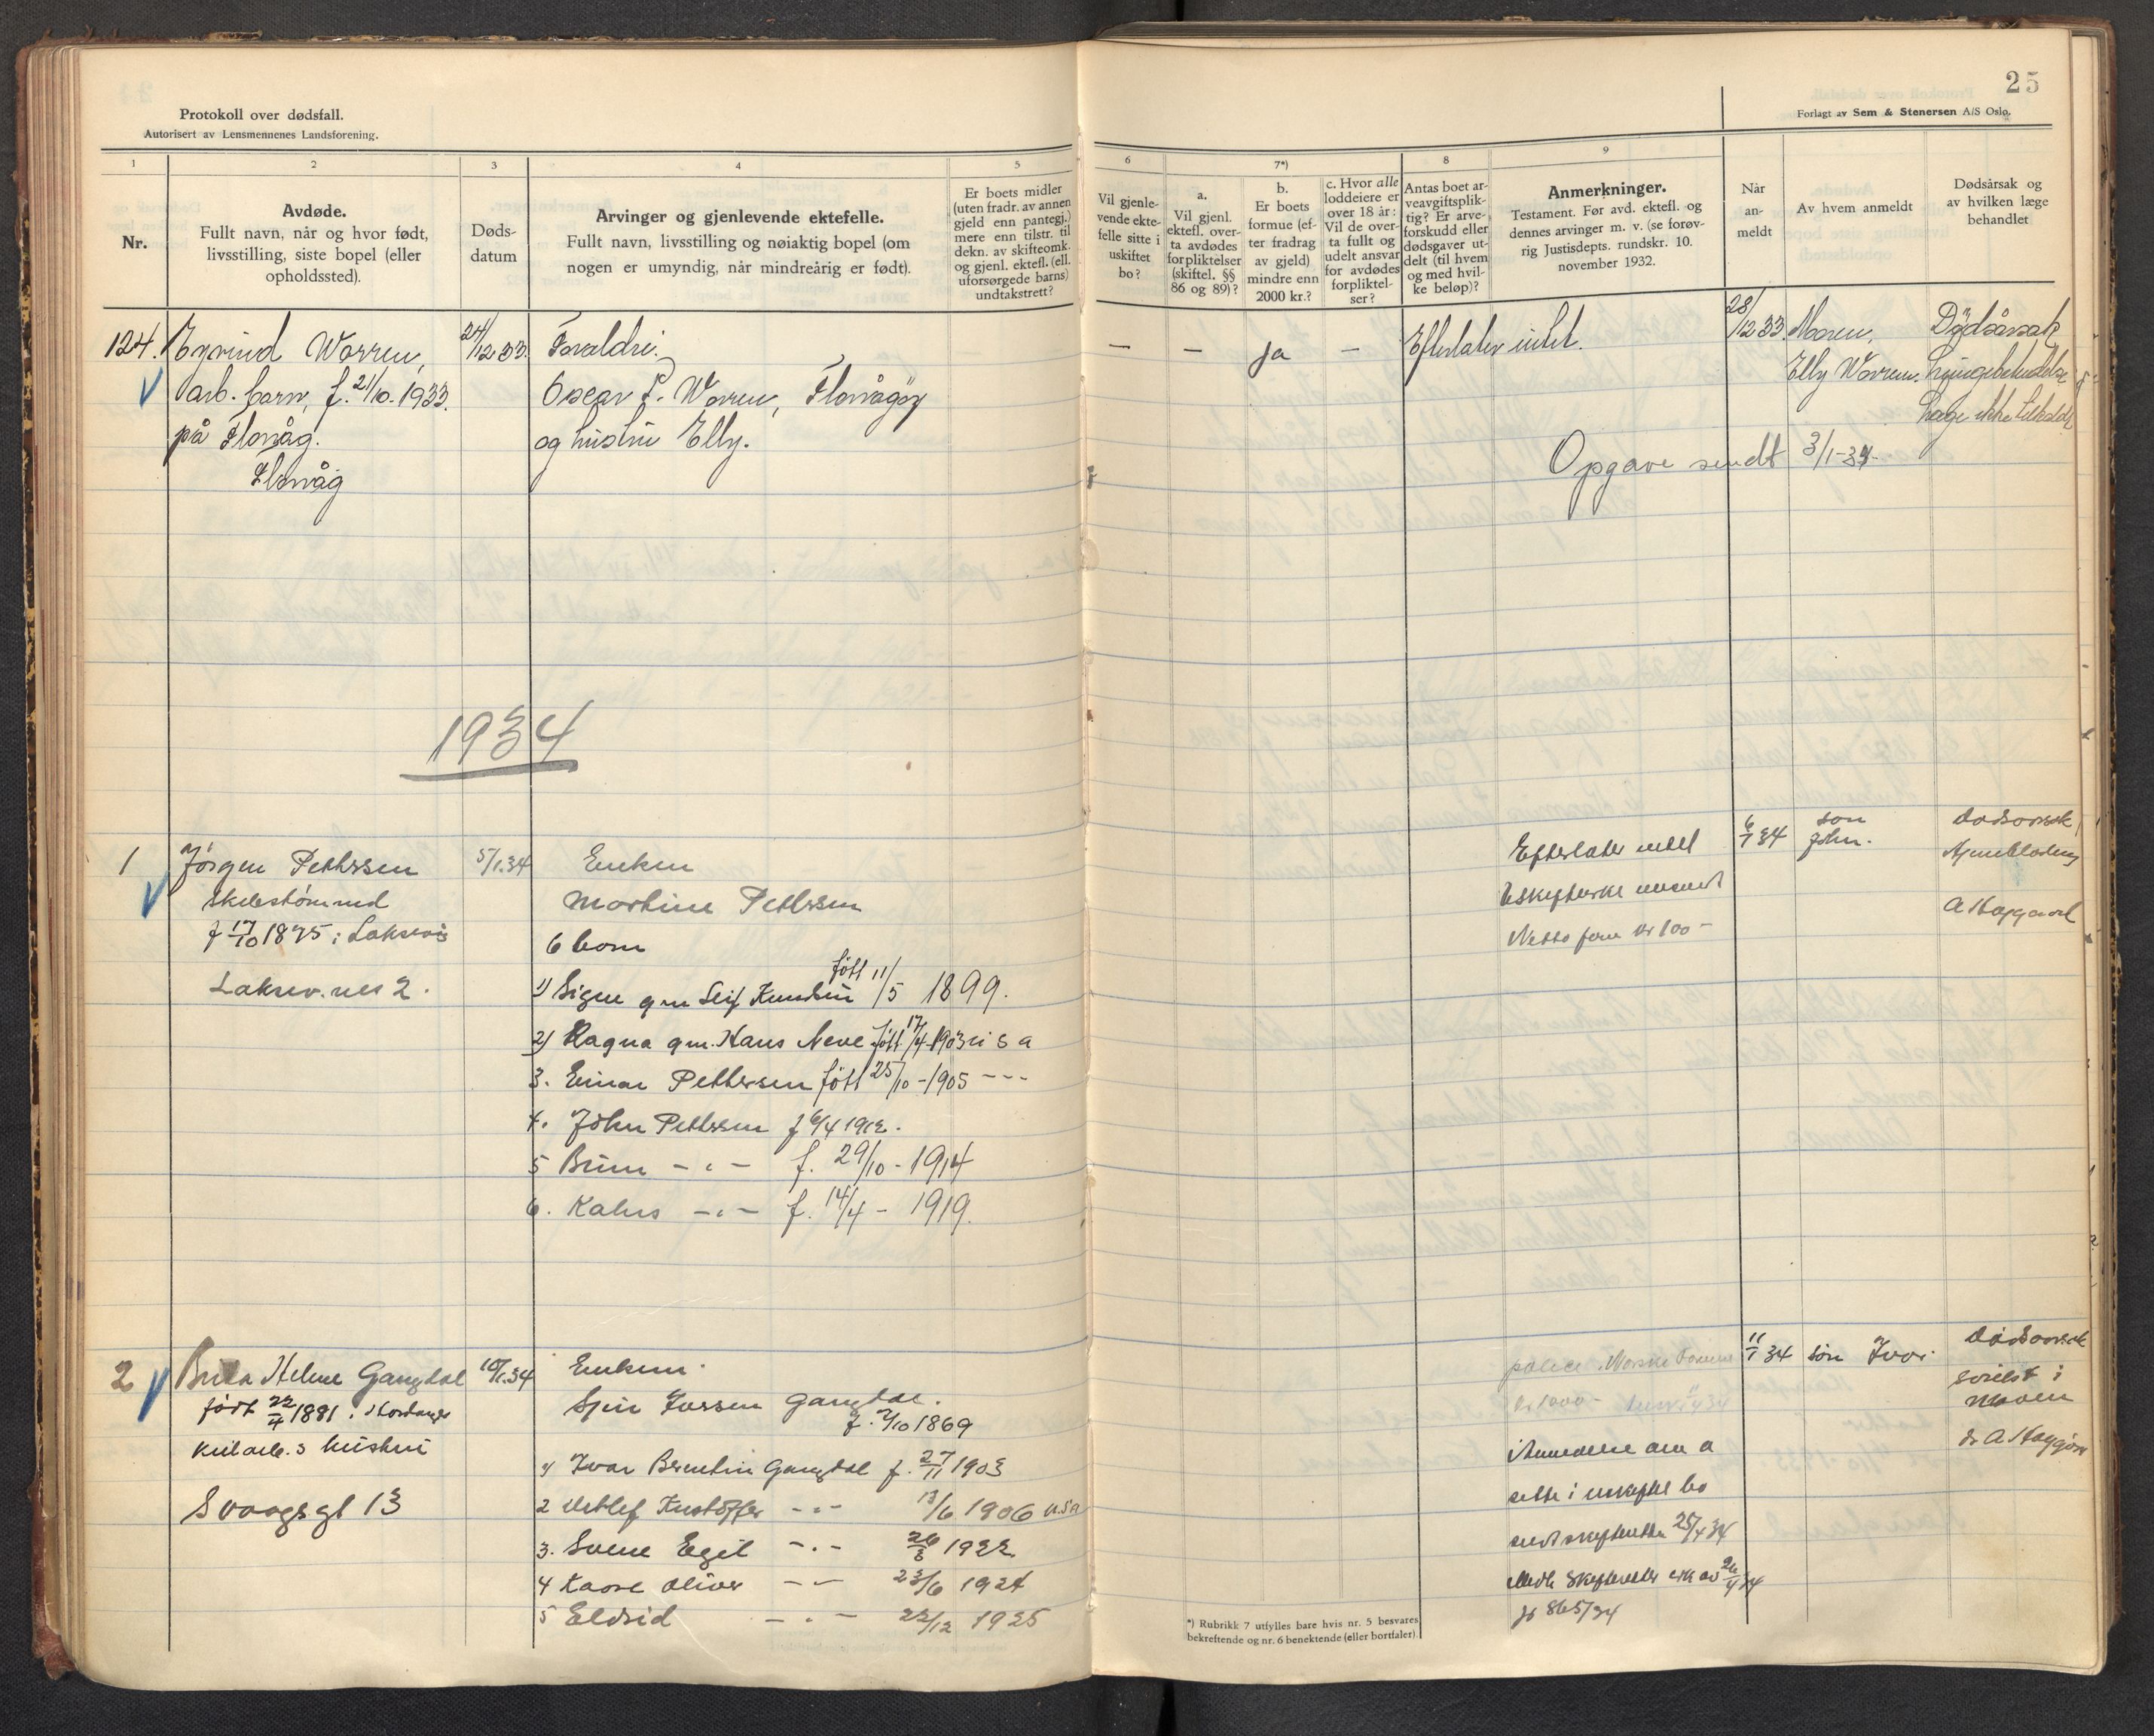 25
Protokoll over dødsfall.
Autorisert av Lensmennenes Landsforening.
Forlagt av Sem & Stenersen A/S Oslo.
1
2
3
4
5
6
7*)
8
9
Nr.
Avdøde.
Fullt navn, når og hvor født,
livsstilling, siste bopel (eller
opholdssted).
Døds-
datum
Arvinger og gjenlevende ektefelle.
Fullt navn, livsstilling og nøiaktig bopel (om
nogen er umyndig, når mindreårig er født).
Er boets midler
(uten fradr. av annen
gjeld enn pantegj.)
mere enn tilstr. til
dekn. av skifteomk.
og gjenl. ektefl. (ell.
uforsørgede barns)
undtakstrett?
Vil gjenle-
vende ekte-
felle sitte i
uskiftet
bo?
a.
Vil gjenl.
ektefl. over-
ta avdødes
forpliktelser
(skiftel. §§
86 og 89)?
b.
Er boets
formue (ef-
ter fradrag
av gjeld)
mindre enn
2000 kr.?
c. Hvor alle
loddeiere er
over 18 år:
Vil de over-
ta fullt og
udelt ansvar
for avdødes
forpliktel-
ser?
Antas boet ar-
veavgiftsplik-
tig? Er arve-
forskudd eller
dødsgaver ut-
delt (til hvem
og med hvil-
ke beløp)?
Anmerkninger.
Testament. Før avd. ektefl. og
dennes arvinger m. v. (se forøv-
rig Justisdepts. rundskr. 10.
november 1932.
Når
an-
meldt
Av hvem anmeldt
Dødsårsak og
av hvilken læge
behandlet
124. Eyvind Warren, 24/12 33. Foreldre.
— — ja — Efterlater intet. 28/12 33. Moren, Dødsårsak
arb. barn, f. 21/10. 1933. Oscar P. Warren, Flørvågöy
Elly Warren.
på Florvåg. og hustru Elly.
læge ikke tilkaldt
Florvåg
Opgave sendt 3/1-34.
1934
1 Jørgen Pettersen 5/1.34 Enken
Efterlater intet 6/1 34 son John. dødsorsak
Martine Pettersen
f 17/10 1875 i Laksevåg 6 born
Netto form kr 100 -
A Haggaard
Laksev.nes 2.
1) Signe gm Leif født 11/5 1899.
2) Ragna gm. Hans Neve født 17/4-1903 U S A
3. Einar Pettersen født 25/10-1905 - - -
4. John Pettersen f 6/4 1912.
5 - " - f. 29/10 - 1914
6. - " - f. 14/4 - 1919.
2 Helene Gangdal 10/1.34 Enkem.
police Norske 11/1 34 sön Ivar. dødsorsak
født 22/4 1881 i Gangdal.
f. 1869
kr 1000 -
svulst i
maven
hustru
1) Ivar Gangdal f. 27/11 1903
om a
Svaagsgt 13
2 Detlef Kristoffer - " - 13/6 1906 U.S.A
sitte i uskiftet bo
3. Egil - " - 1922
sendt skifteretten 25/4 34
4 Kaare Oliver - " - 23/6 1924
5 Eldrid - " - 22/12 1925
jr 865/34
*) Rubrikk 7 utfylles bare hvis nr. 5 besvares
bekreftende og nr. 6 benektende (eller bortfaler).